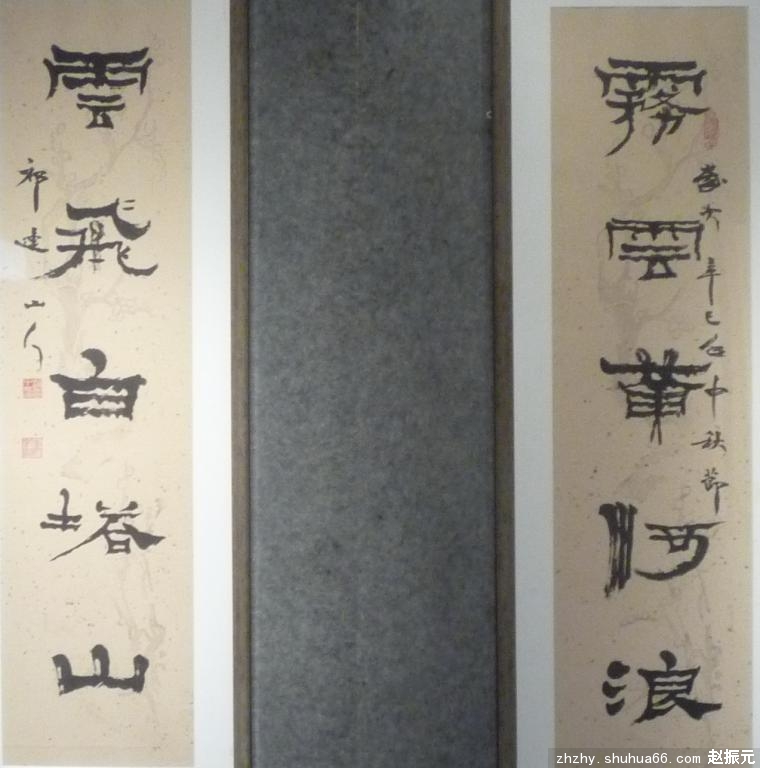 霧雲黃河浪
歲次辛巳年中秋節
雲飛白塔山
祁連山人
zhzhy.shuhua66.com 赵振元